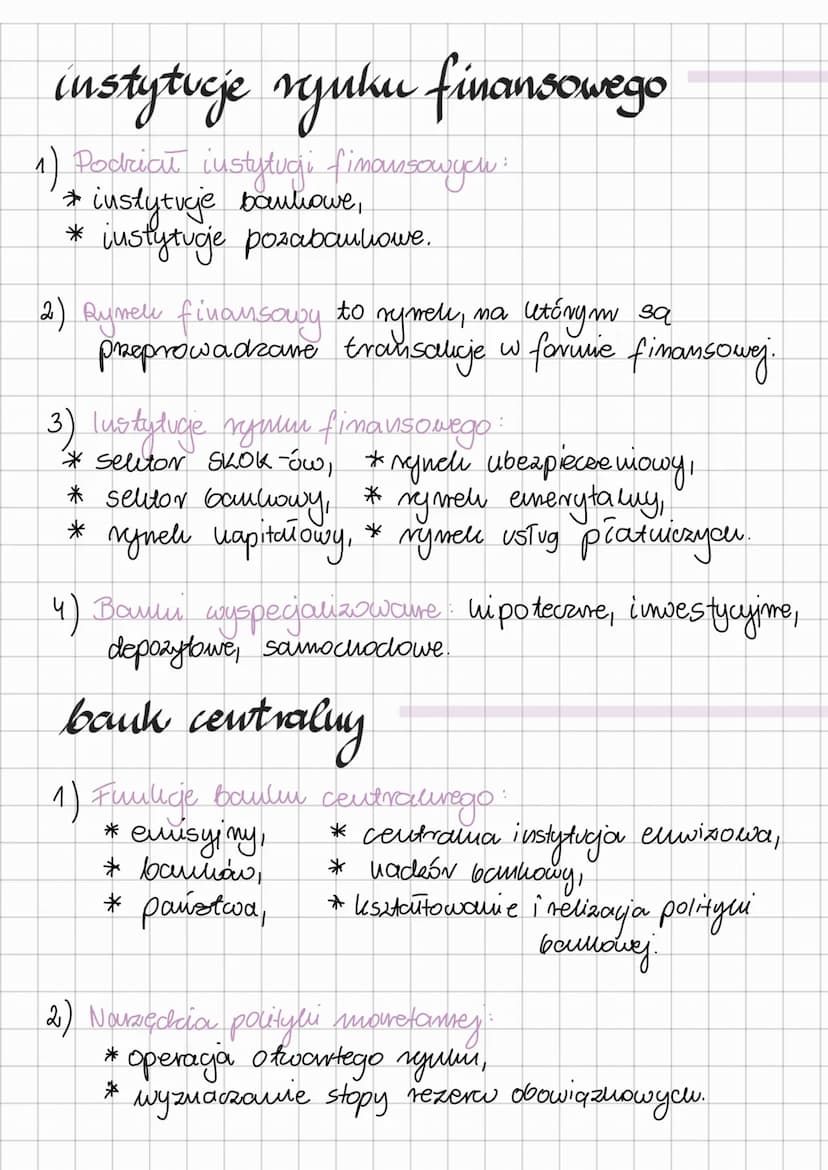 instytucje rynku finansowego
1) Podział instytucji finansowych:
* instytucje bankowe,
* instytucje pozabankowe.
2) Rynek finansowy to rynek, na którym są
przeprowadzane transakcje w formie finansowej.
3) Instytucje rynku finansowego:
* sektor SKOK-ów, * rynek ubezpieczeniowy,
* sektor bankowy, * rynek emerytalny,
* rynek kapitałowy, * rynek usług płatniczych.
4) Banki wyspecjalizowane: hipoteczne, inwestycyjne,
depozytowe, samochodowe.
bank centralny
1) Funkcje banku centralnego:
* emisyjny, * centralna instytucja emisowa,
* banków, * nadzór bankowy,
* państwa, * kształtowanie i relizacja polityki
bankowej.
2) Narzędzia polityki monetarnej:
* operacja otwartego rynku,
* wyznaczanie stopy rezerw obowiązkowych.